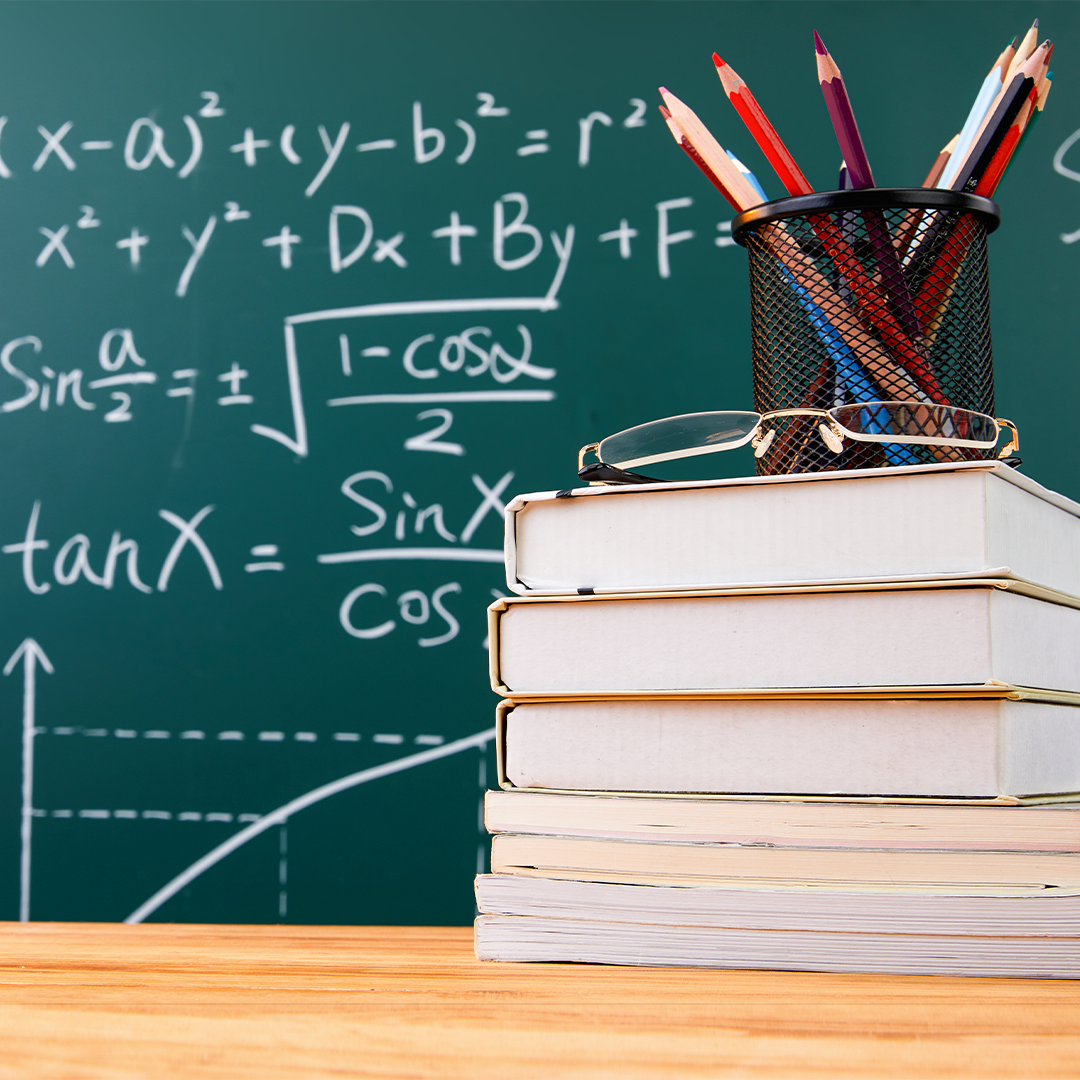 (x-a)²+(y-b)²=r²
x²+y²+Dx+By+F=
Sin a/2 = ± √((1-cosα)/2)
tanX = SinX/cos